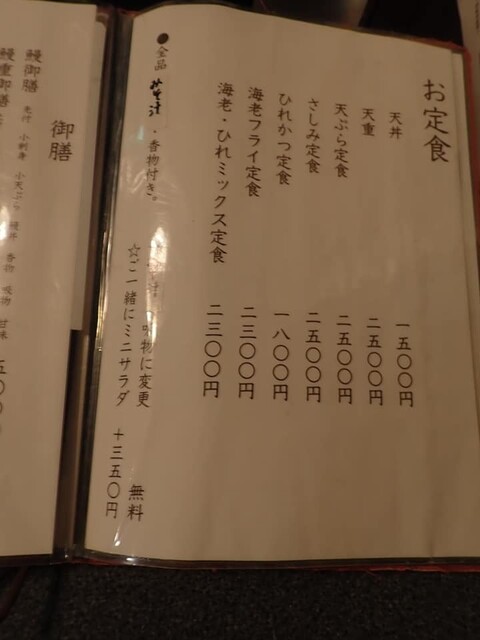 お定食
天丼 一五〇〇円
天重 二五〇〇円
天ぷら定食 二五〇〇円
さしみ定食 二五〇〇円
ひれかつ定食 一八〇〇円
海老フライ定食 二三〇〇円
海老・ひれミックス定食 二三〇〇円
●全品 みそ汁・香物付き。
吸物に変更 無料
☆ご一緒にミニサラダ +三五〇円
御膳
鰻御膳 先付 小刺身 小天ぷら 鰻丼 香物 吸物 甘味
鰻重御膳